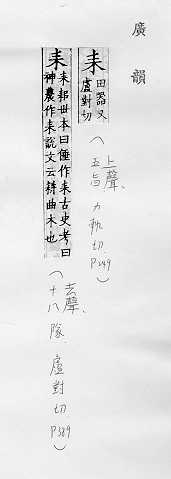 廣韻
耒 田器又盧對切
(上聲、五旨 力軌切. P249)
耒 耒耜世本曰倕作耒古史考曰神農作耒說文云耕曲木也
(去聲、十八隊. 盧對切 P389)